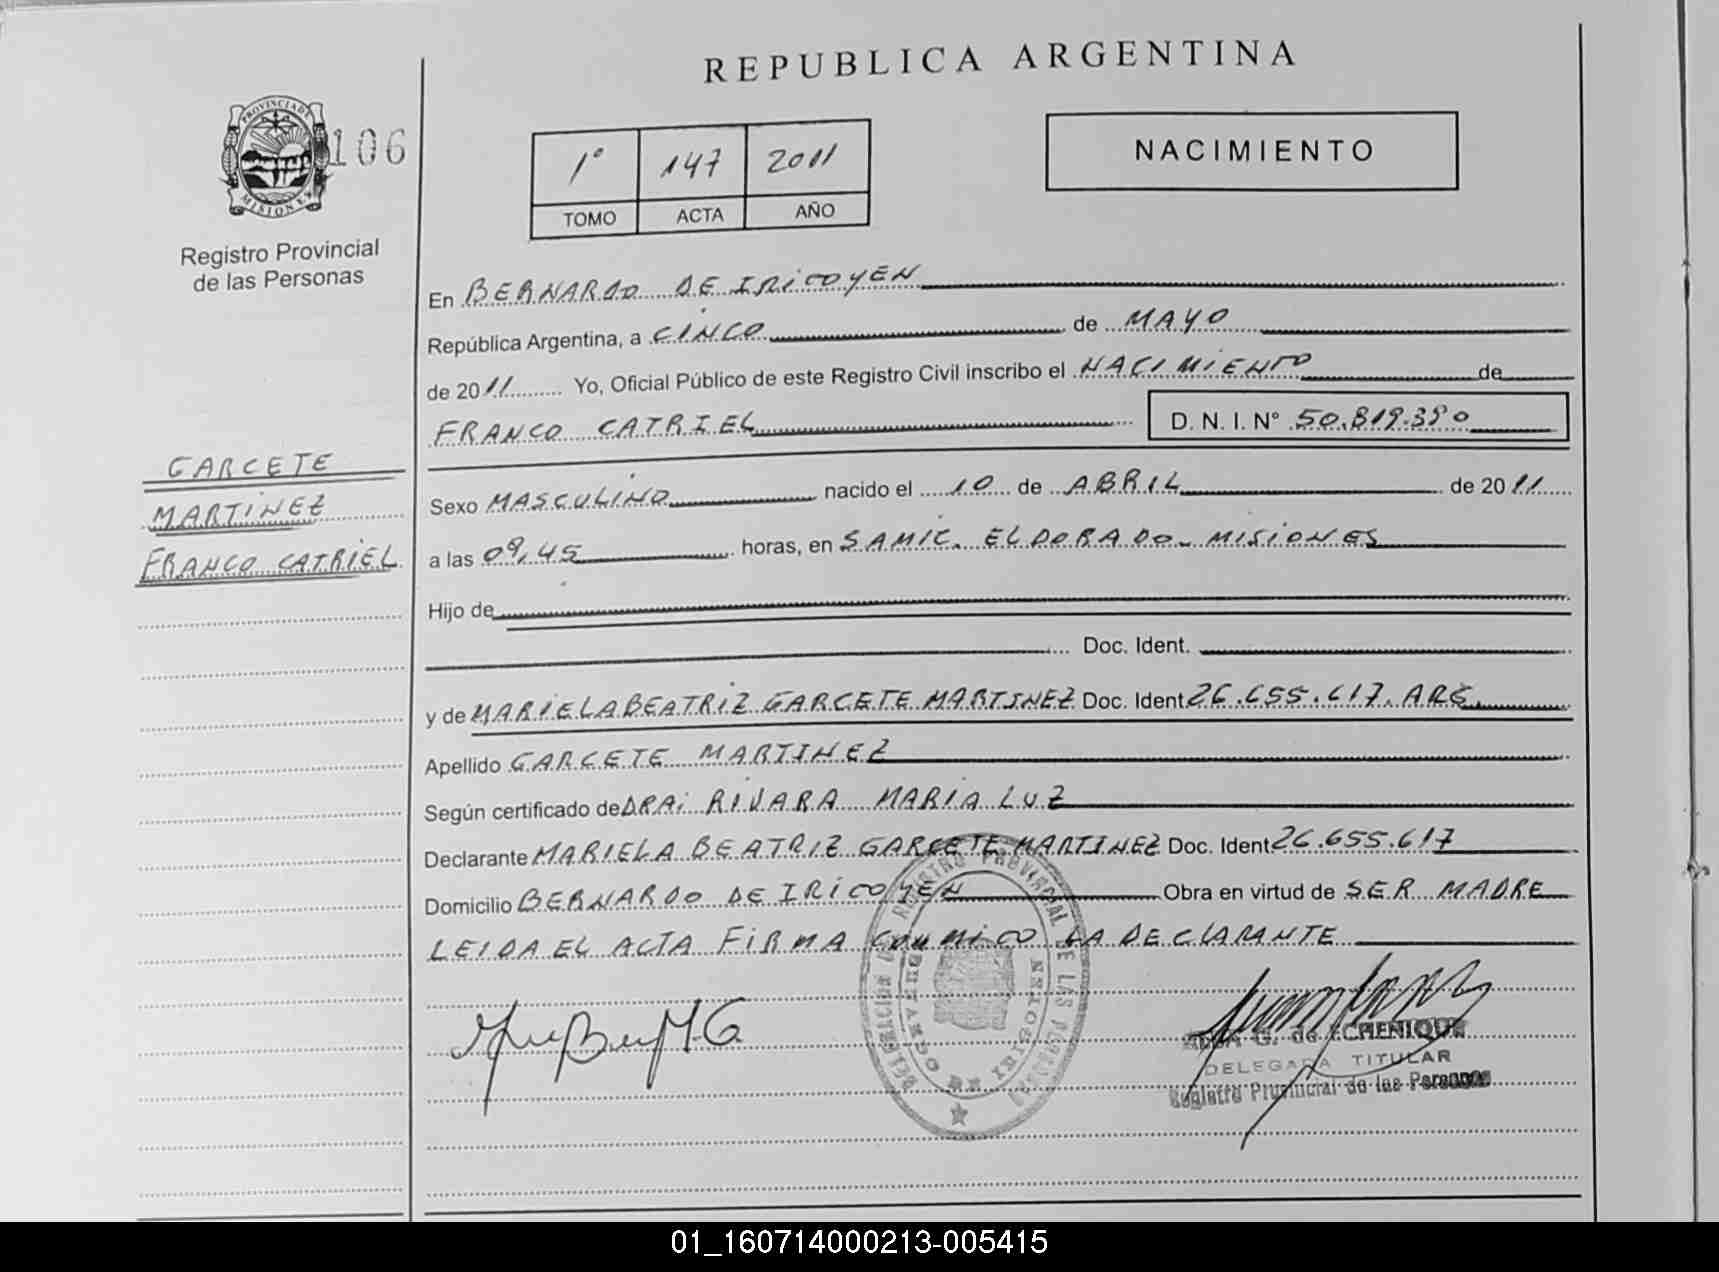 REPUBLICA ARGENTINA
PROVINCIA DE
MISIONES
106
1° 147 2011
TOMO ACTA AÑO
NACIMIENTO
Registro Provincial
de las Personas
En BERNARDO DE IRICOYEN
República Argentina, a CINCO de MAYO
de 2011 Yo, Oficial Público de este Registro Civil inscribo el NACIMIENTO de
FRANCO CATRIEL D. N. I. N° 50.819.390
GARCETE
MARTINEZ
FRANCO CATRIEL
Sexo MASCULINO nacido el 10 de ABRIL de 2011
a las 09,45 horas, en SAMIC. ELDORADO. MISIONES
Hijo de
Doc. Ident.
y de MARIELA BEATRIZ GARCETE MARTINEZ Doc. Ident 26.655.617. ARG.
Apellido GARCETE MARTINEZ
Según certificado de DRA: RIVARA MARIA LUZ
Declarante MARIELA BEATRIZ GARCETE MARTINEZ Doc. Ident 26.655.617
Domicilio BERNARDO DE IRICOYEN Obra en virtud de SER MADRE
LEIDA EL ACTA FIRMA CONMIGO LA DECLARANTE
G. de ECHENIQUE
DELEGADA TITULAR
Registro Provincial de las Personas
01_160714000213-005415